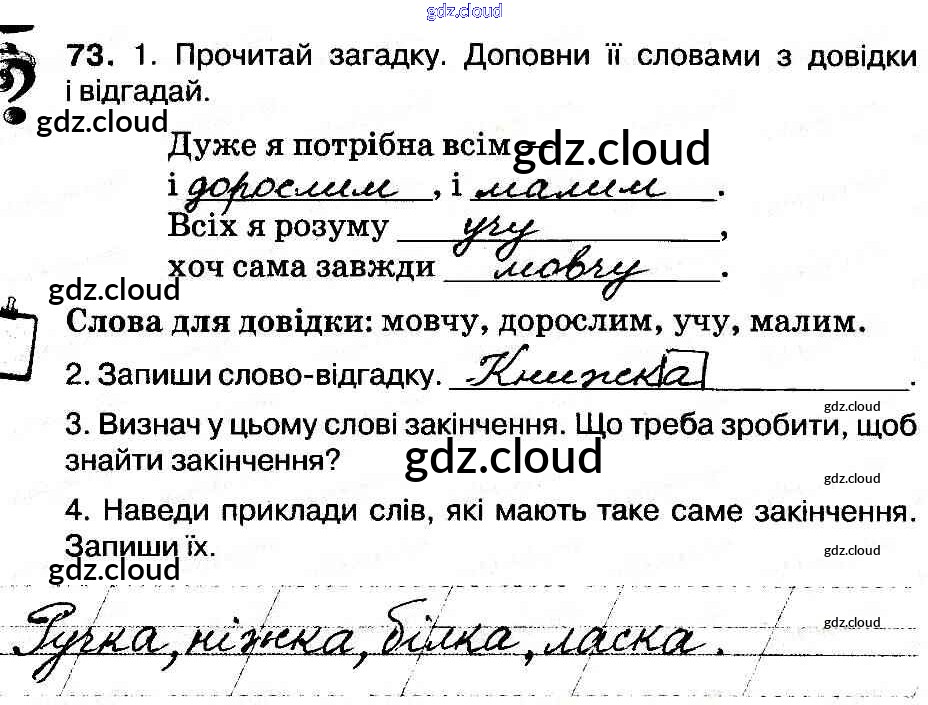 gdz.cloud
73. 1. Прочитай загадку. Доповни її словами з довідки
і відгадай.
gdz.cloud
Дуже я потрібна всім –
gdz.cloud
і дорослим, і малим.
Всіх я розуму учу,
хоч сама завжди мовчу.
gdz.cloud
Слова для довідки: мовчу, дорослим, учу, малим.
2. Запиши слово-відгадку. Книжка.
gdz.cloud
3. Визнач у цьому слові закінчення. Що треба зробити, щоб
знайти закінчення?
gdz.cloud
gdz.cloud
4. Наведи приклади слів, які мають таке саме закінчення.
Запиши їх.
gdz.cloud
gdz.cloud
Ручка, ніжка, білка, ласка.
gdz.cloud